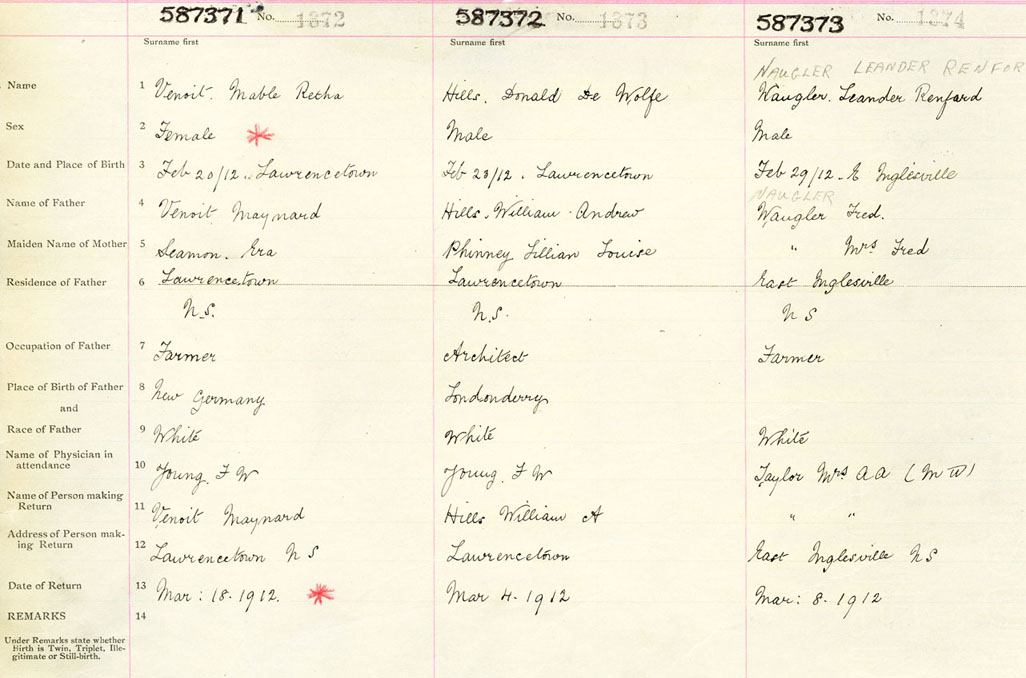 587371 No. 1372
587372 No. 1373
587373 No. 1374
Surname first
Surname first
Surname first
NAUGLER LEANDER RENFOR
Name 1 Venoit. Mable Retha
Hills. Donald De Wolfe
Waugler. Leander Renfard
Sex 2 Female
Male
Male
Date and Place of Birth 3 Feb 20/12. Lawrencetown
Feb 23/12. Lawrencetown
Feb 29/12 - E Inglesville
NAUGLER
Name of Father 4 Venoit Maynard
Hills. William Andrew
Waugler Fred.
Maiden Name of Mother 5 Seamon. Era
Phinney Lillian Louise
" Mrs Fred
Residence of Father 6 Lawrencetown
Lawrencetown
East Inglesville
N.S.
N.S.
N S
Occupation of Father 7 Farmer
Architect
Farmer
Place of Birth of Father 8 New Germany
Londonderry
and
Race of Father 9 White
White
White
Name of Physician in
attendance 10 Young. F W
Young. F W
Taylor Mrs A A (M W)
Name of Person making
Return 11 Venoit Maynard
Hills William A
" "
Address of Person mak-
ing Return 12 Lawrencetown N S
Lawrencetown
East Inglesville NS
Date of Return 13 Mar: 18. 1912.
Mar 4. 1912
Mar: 8. 1912
REMARKS 14
Under Remarks state whether
Birth is Twin, Triplet, Ille-
gitimate or Still-birth.